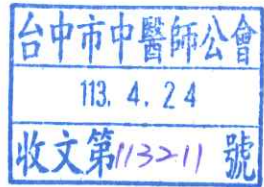 台中市中醫師公會
113. 4. 24
收文第113211號